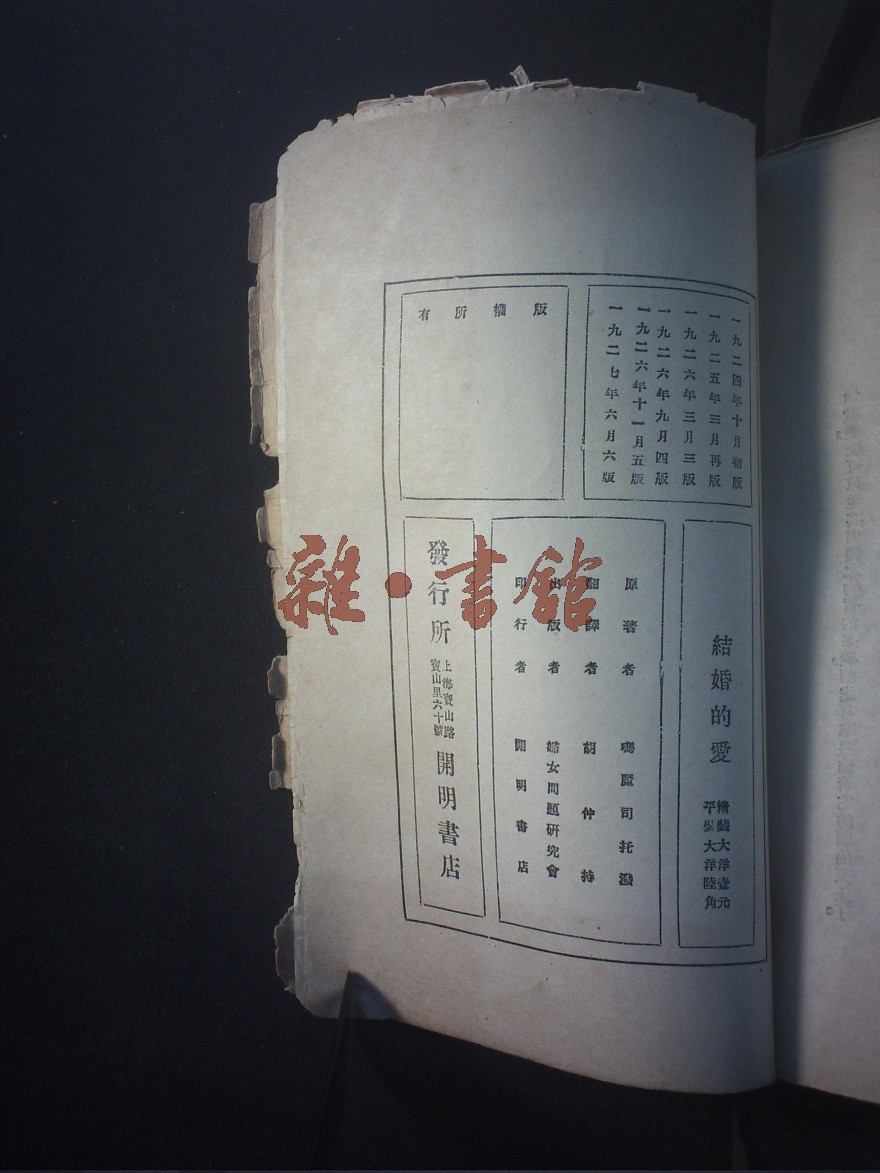 一九二四年十月初版
一九二五年三月再版
一九二六年三月三版
一九二六年九月四版
一九二六年十一月五版
一九二七年六月六版
版權所有
結婚的愛
精裝大洋壹元
平裝大洋陸角
原著者 瑪麗司托潑
翻譯者 胡仲持
出版者 婦女問題研究會
印行者 開明書店
發行所
上海寶山路
寶山里六十號
開明書店
雜·書館